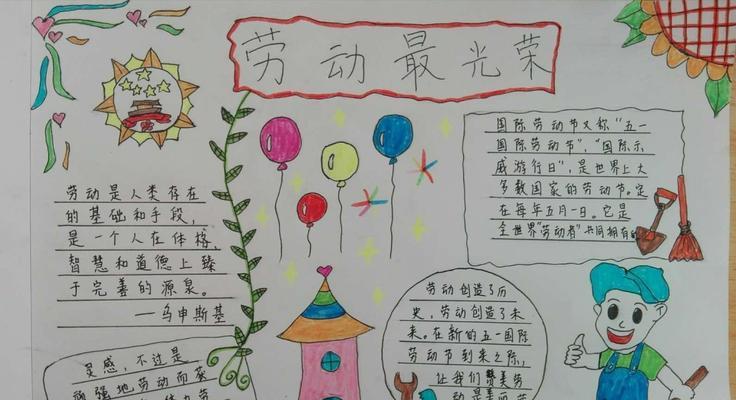 劳动最光荣
国际劳动节又称"五一
国际劳动节"、"国际示
威游行日"，是世界上大
多数国家的劳动节。定
在每年五月一日。它是
全世界"劳动者"共同拥有的
劳动是人类存在
的基础和手段，
是一个人在体格，
智慧和道德上臻
于完善的源泉。
——乌申斯基
劳动创造了历
史，劳动创造了未
来。在新的五一国际
劳动节到来之际，
让我们赞美劳
动是美丽劳
灵感，不过是
顽强地劳动而获